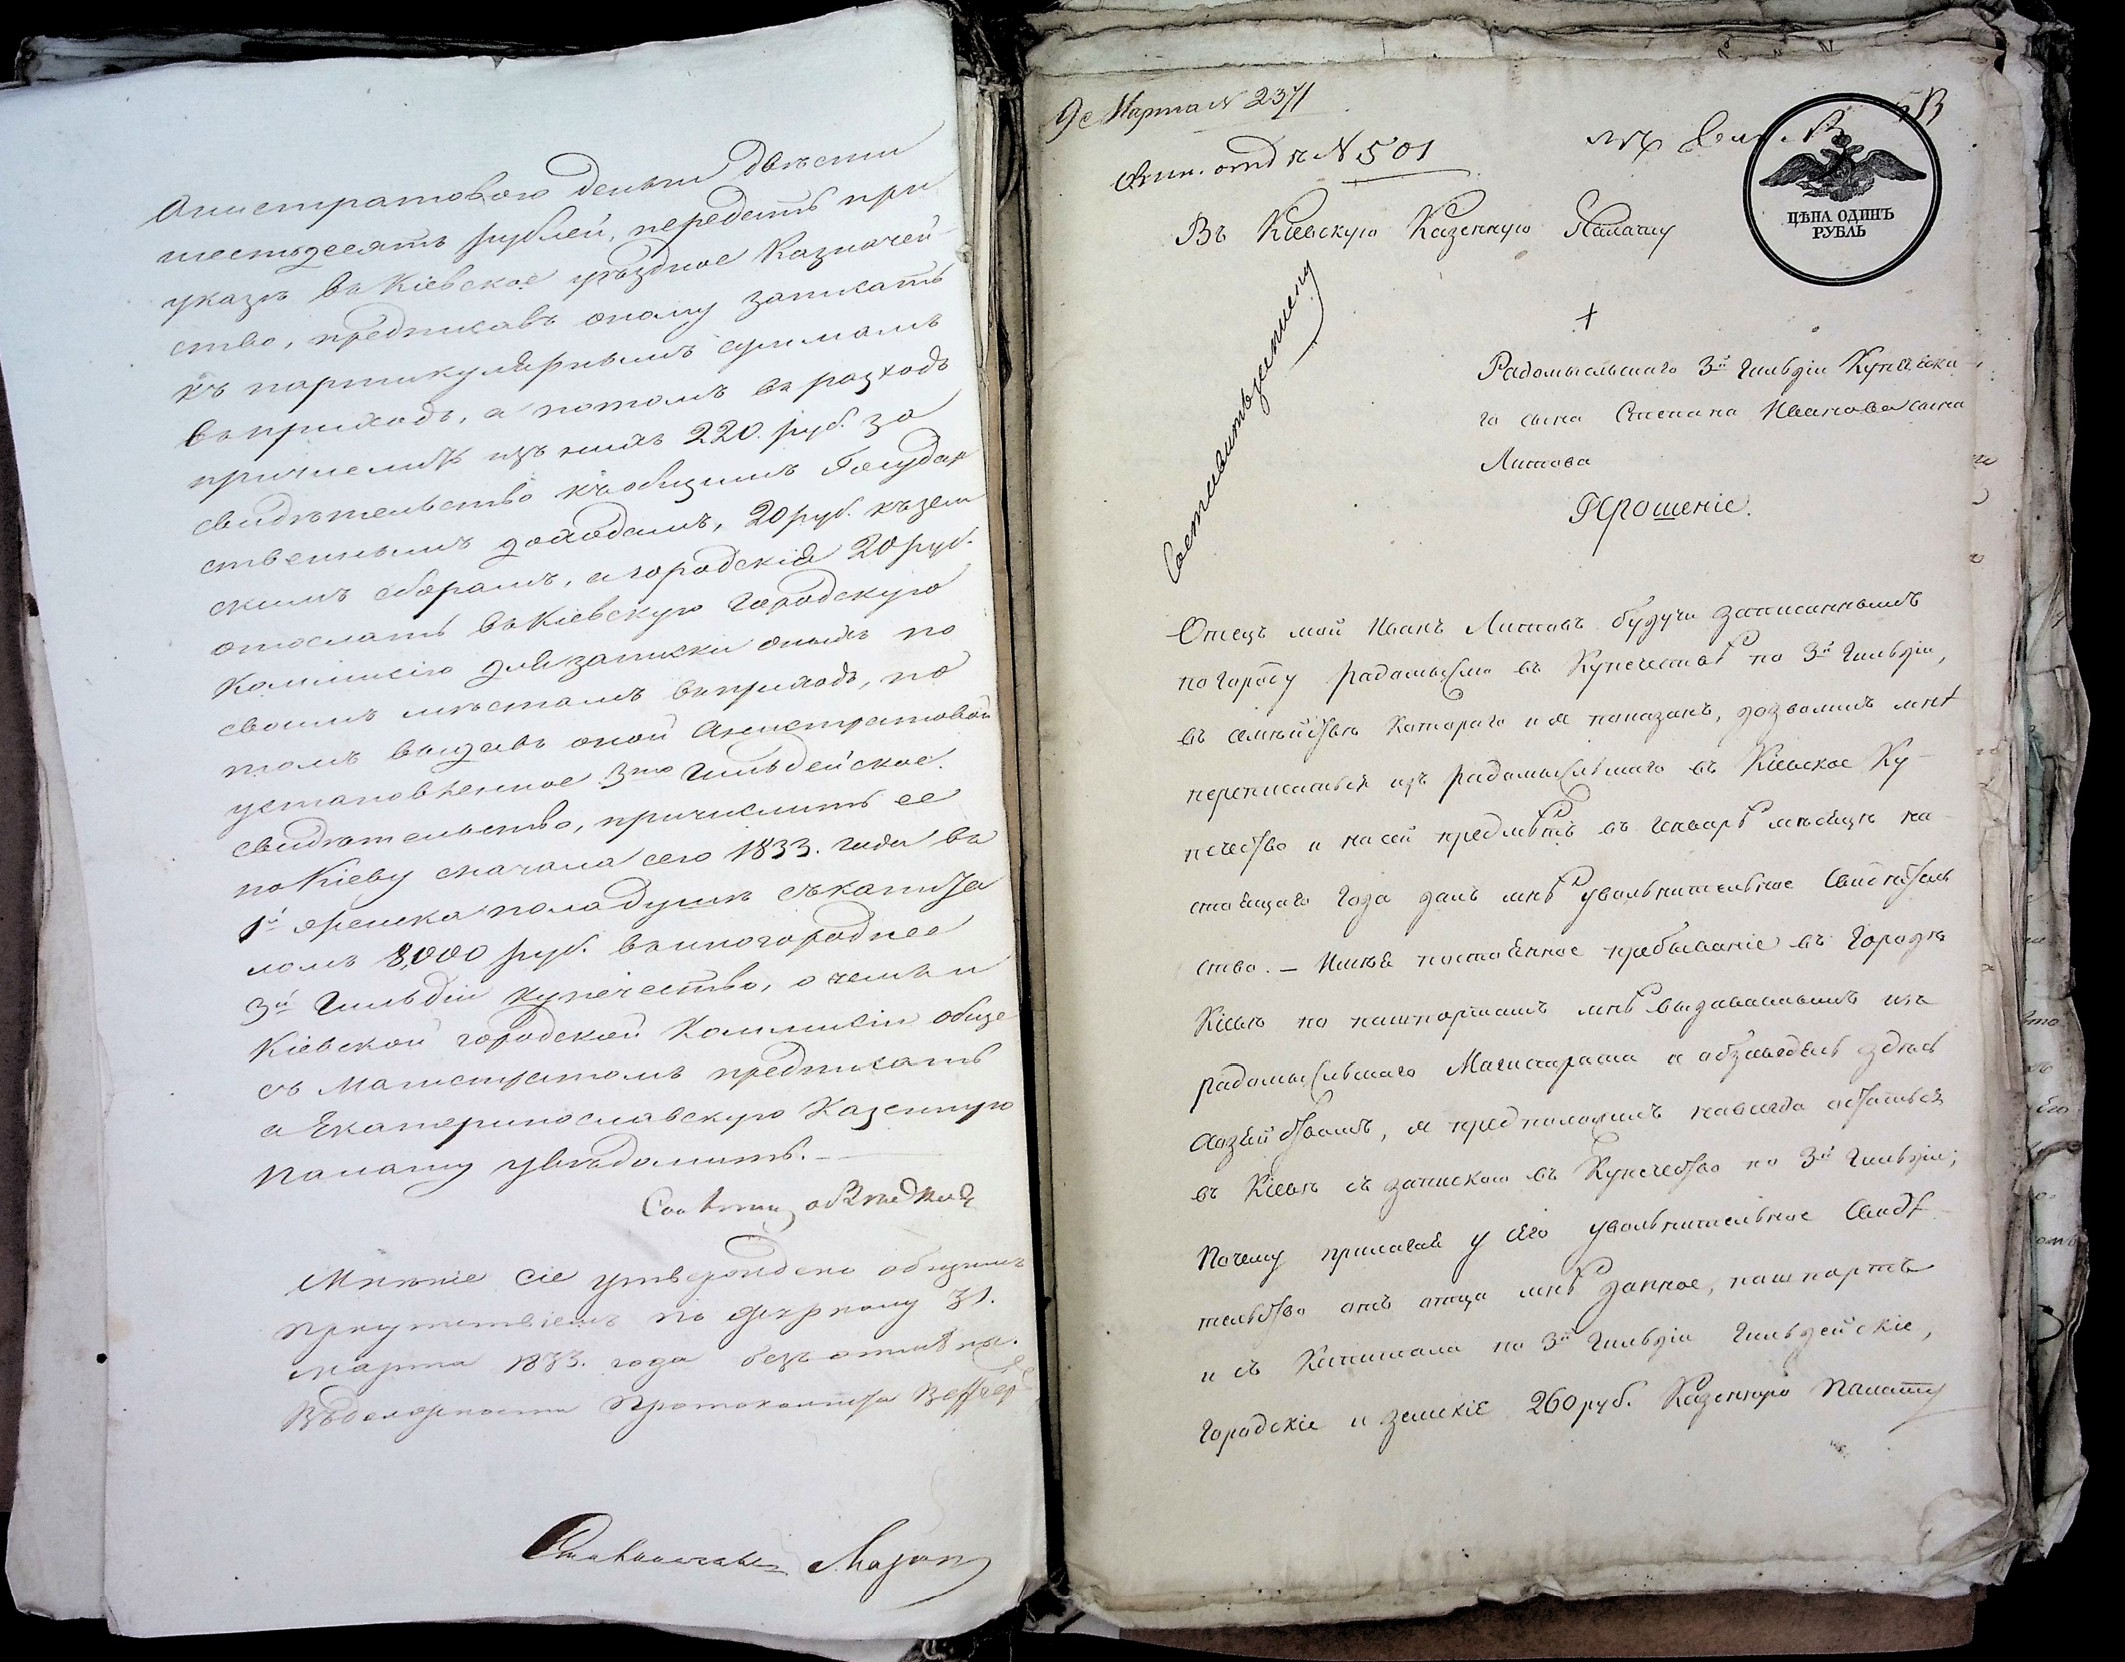 Анистратового деньги двѣсти
шестьдесятъ рублей, передать при
указѣ въ Кіевское уѣздное Казначей
ство, предписавъ оному записать
къ партикулярнымъ суммамъ
въ приходъ, а потомъ въ расходъ
причислить изъ нихъ 220. руб. за
свидѣтельство къ общимъ Государ
ственнымъ доходамъ, 20 руб. къ зем
скимъ сборамъ, а городскія 20 руб.
отослать въ Кіевскую городскую
Коммисію для записки оныхъ по
своимъ мѣстамъ въ приходъ, по
томъ выдавъ оной Анистратовой
установленное 3то Гильдейское
свидѣтельство, причислить ее
по Кіеву сначала сего 1833. года въ
1й женска пола душѣ съ капита
ломъ 8,000 руб. въ иногороднее
3й Гильдіи купечество, о чемъ и
Кіевской городской Коммисіи обще
съ Магистратомъ предписать
а Екатеринославскую Казенную
Палату увѣдомить.
Мнѣніе сіе утверждено общимъ
присутствіемъ по журналу 31.
марта 1833. года безъ отмѣны.
Въ должности Протоколиста
9е Марта N 2371
отд N 501
ЦѢНА ОДИНЪ
РУБЛЬ
Въ Кіевскую Казенную Палату
Радомысльскаго 3й Гильдіи Купеческа
го сына Степана Иванова сына
Литова
Прошеніе.
Отецъ мой Иванъ Литовъ будучи записаннымъ
по городу Радомыслю въ Купечество по 3й Гильдіи,
въ семействѣ Котораго и я показанъ, дозволилъ мнѣ
переписаться изъ Радомысльскаго въ Кіевское Ку-
печество и на сей предмѣтъ въ Генварѣ мѣсяцѣ на
стоящаго Года далъ мнѣ увольнительное Свидѣтель
ство. – Имѣя постоянное пребываніе въ Городѣ
Кіевѣ по пашпортамъ мнѣ выдаваемымъ изъ
Радомысльскаго Магистрата и обзаведясь здѣсь
хозяйствомъ, я предположилъ навсегда остаться
въ Кіевѣ съ запискою въ Купечество по 3й Гильдіи;
Почему прилагая у сего увольнительное Свидѣ
тельство отъ отца мнѣ данное, пашпортъ
и съ Капитала по 3й Гильдіи Гильдейскіе,
Городскіе и земскіе 260 руб. Казенную Палату